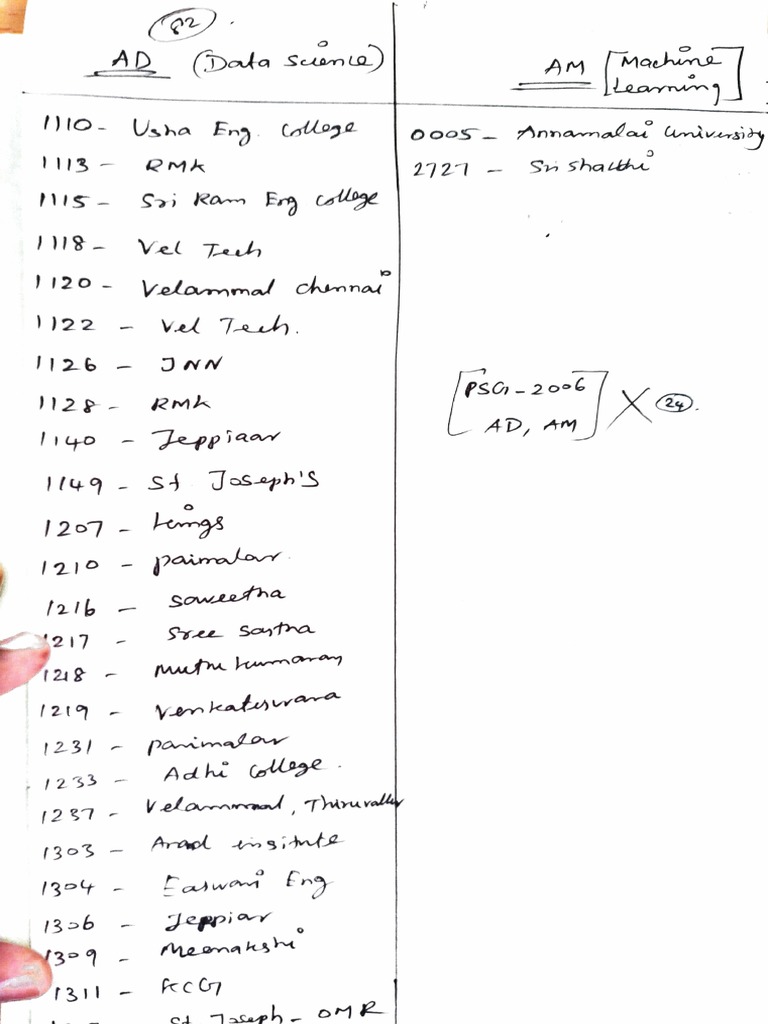 82
AD (Data science)
1110 - Usha Eng. College
1113 - RMK
1115 - Sri Ram Eng college
1118 - Vel Tech
1120 - Velammal chennai
1122 - Vel Tech.
1126 - JNN
1128 - RMK
1140 - Jeppiaar
1149 - St Joseph's
1207 - Kings
1210 - paimalar
1216 - saweetha
1217 - Sree Sastha
1218 - Muthukumaran
1219 - Venkateswara
1231 - panimalar
1233 - Adhi college.
1237 - Velammaal, Thiruvallur
1303 - Anad insitute
1304 - Easwari Eng
1306 - Jeppiar
1309 - Meenakshi
1311 - KCG
St Joseph - OMR
AM [Machine
Learning]
0005 - Annamalai University
2727 - Sri Shakthi
[PSG - 2006
AD, AM] X 24.